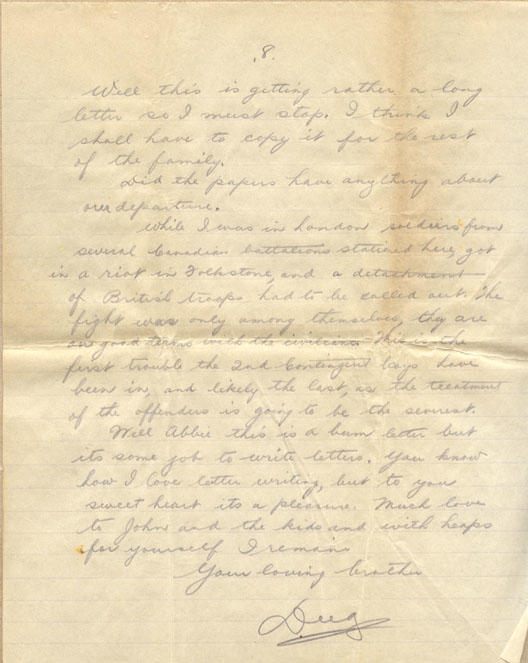 .8.
Well this is getting rather a long
letter so I must stop. I think I
shall have to copy it for the rest
of the family.
Did the papers have anything about
our departure.
While I was in London soldiers from
several Canadian battalions stationed here, got
in a riot in Folkstone, and a detachment
of British troops had to be called out. The
fight was only among themselves, they are
on good terms with the civilians. This is the
first trouble the 2nd Contingent boys have
been in, and likely the last, as the treatment
of the offenders is going to be the severest.
Well Abbie this is a bum letter but
its some job to write letters. You know
how I love letter writing, but to you
sweet heart its a pleasure. Much love
to John and the kids and with heaps
for yourself I remain
Your loving brother
Doug